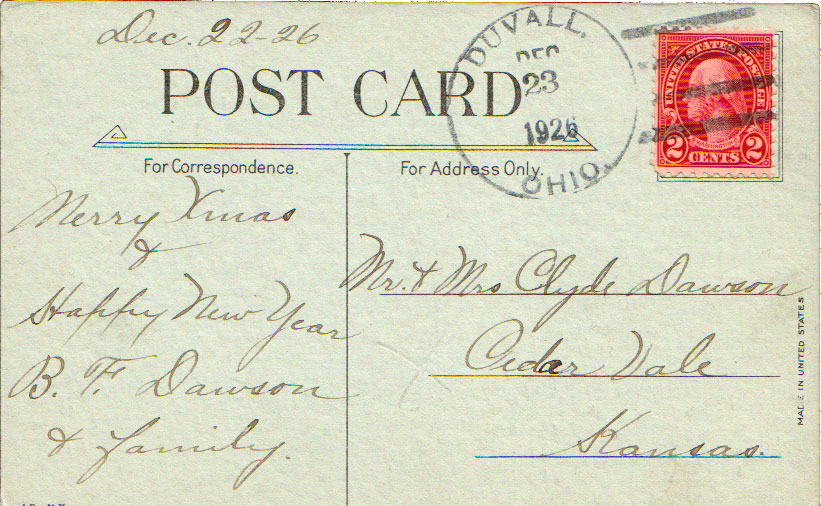 Dec. 22-26
POST CARD
DUVALL,
DEC
23
1926
OHIO.
UNITED STATES POSTAGE
WASHINGTON
2 CENTS 2
For Correspondence.
For Address Only.
Merry Xmas
&
Happy New Year
B. F. Dawson
& family.
Mr. & Mrs Clyde Dawson
Cedar Vale
Kansas.
MADE IN UNITED STATES